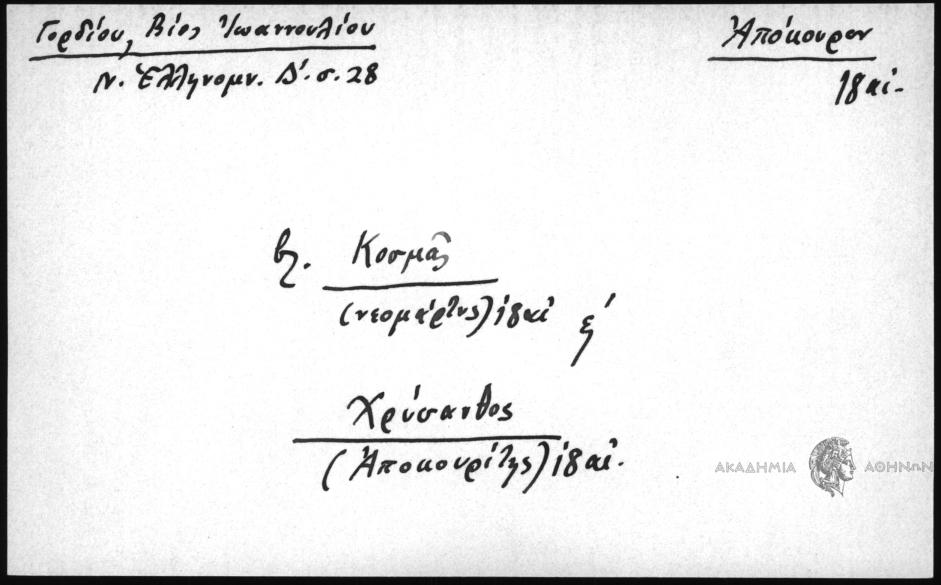 Γορδίου, Βίος Ἰωαννουλίου
Ν. Ἑλληνομν. Δ'. σ. 28
Ἀπόκουρον
18 αἰ.
βλ. Κοσμᾶς
(νεομάρτυς) 18 αἰ
Χρύσανθος
(Ἀποκουρίτης) 18 αἰ.
ΑΚΑΔΗΜΙΑ ΑΘΗΝΩΝ